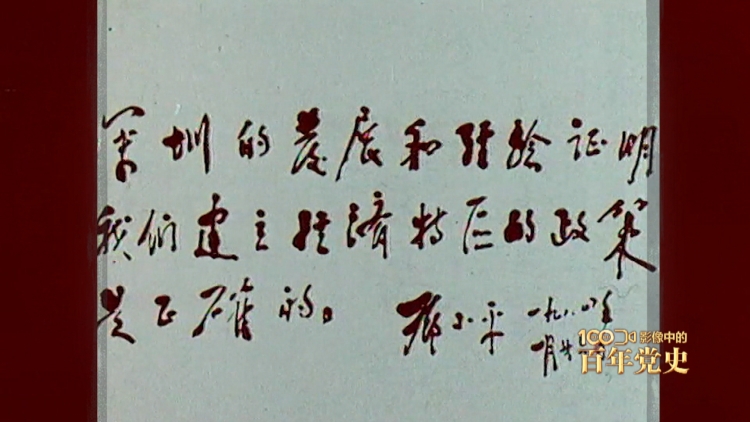 深圳的发展和经验证明
我们建立经济特区的政策
是正确的。 邓小平 一九八四年
一月廿六日
100 影像中的
百年党史